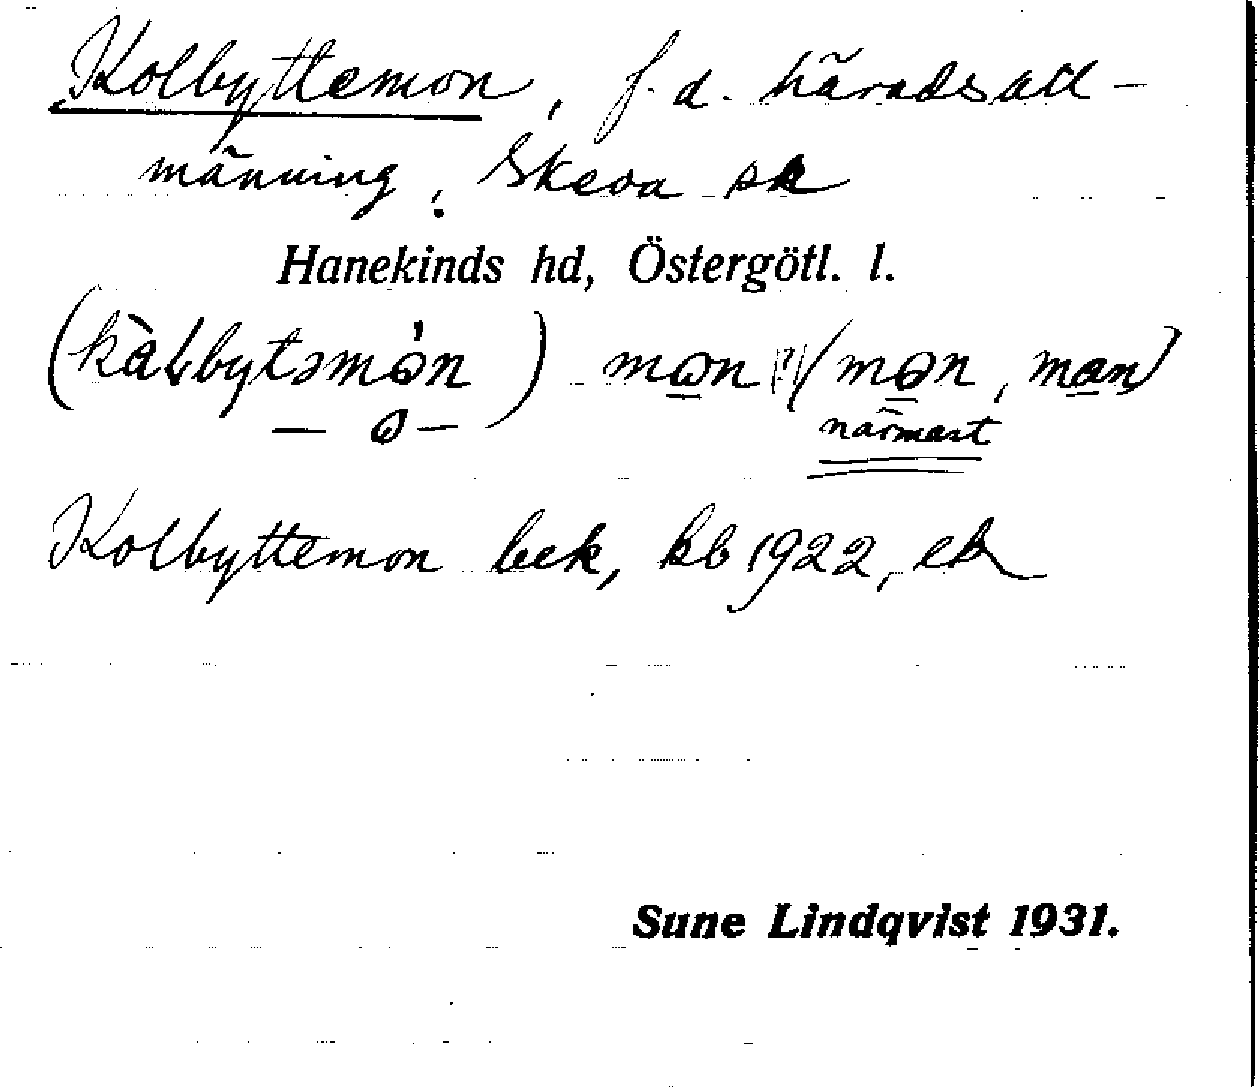 Kolbyttemon, f. d. häradsall-
männing, Skeda sk
Hanekinds hd, Östergötl. l.
(kàɫbytəmɷ́n) mɷn (mɵn, man)
— ɵ — närmast
Kolbyttemon bek, kb 1922, ek
Sune Lindqvist 1931.